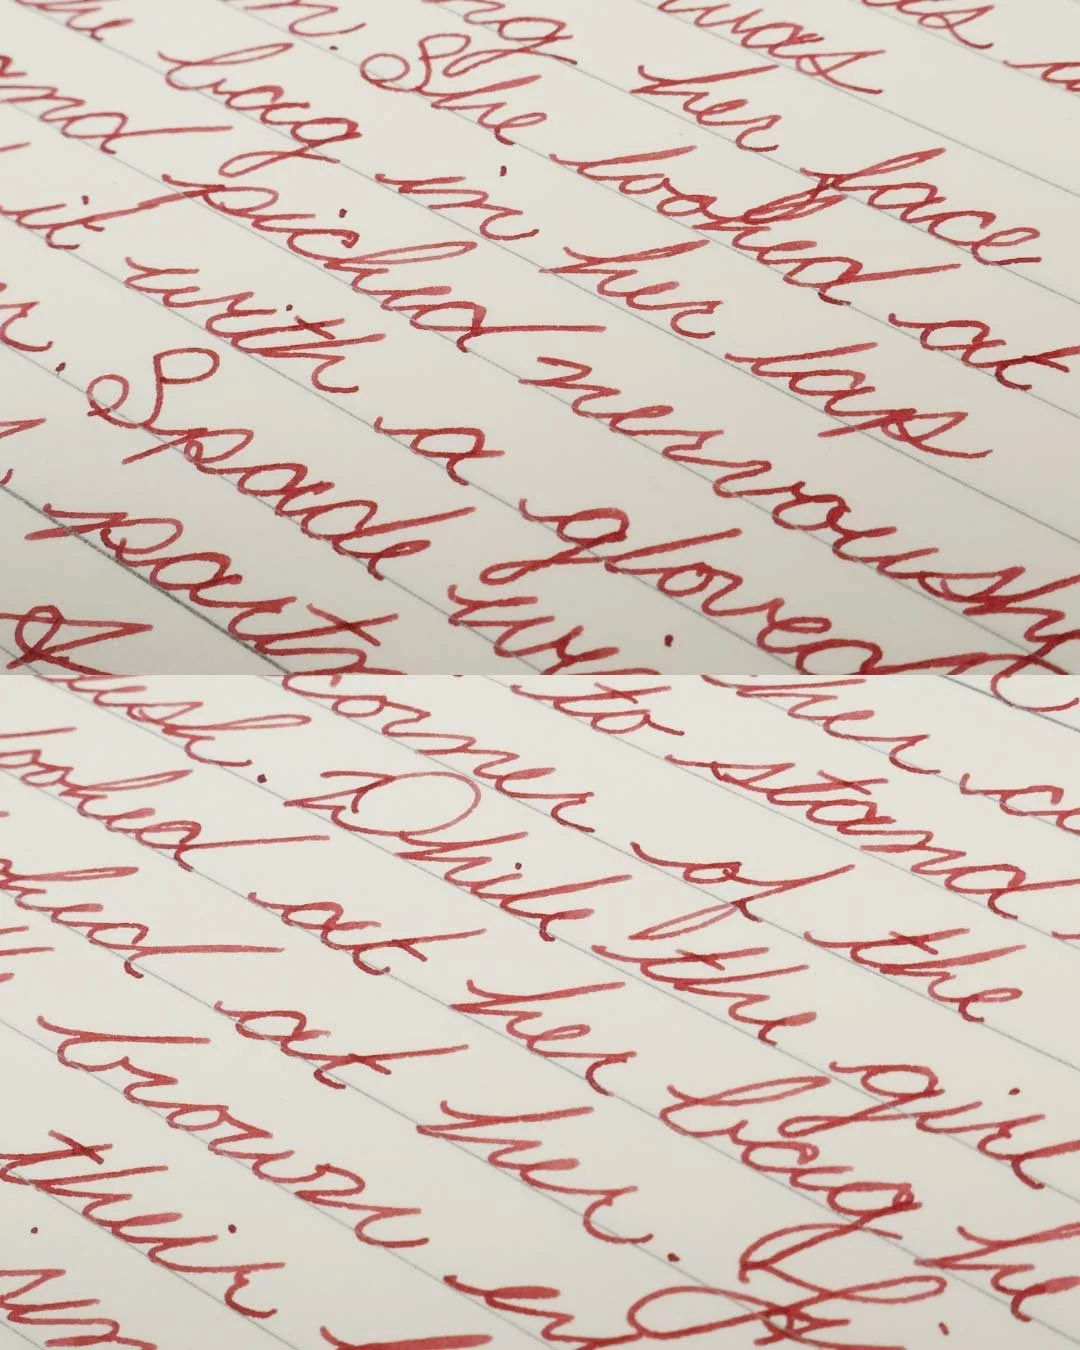 was
ng her face
n. She looked at
the bag in her laps
and picked nervously
it with a gloved
r. Spade
parts
her
to stand
corner of the
desk. While the girl
looked at her bag he
at her.
brown
their